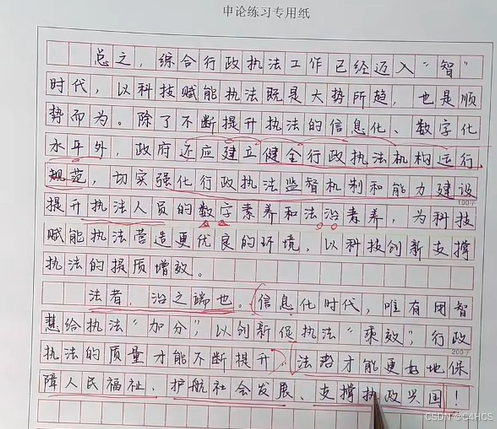 申论练习专用纸
总之，综合行政执法工作已经迈入“智”
时代，以科技赋能执法既是大势所趋，也是顺
势而为。除了不断提升执法的信息化、数字化
水平外，政府还应建立健全行政执法机构运行
规范，切实强化行政执法监督机制和能力建设
100字
提升执法人员的数字素养和法治素养，为科技
赋能执法营造更优良的环境，以科技创新支撑
执法的提质增效。
法者，治之端也。信息化时代，唯有用智
慧给执法“加分”，以创新促执法“乘效”，行政
执法的质量才能不断提升，法者才能更好地保
200字
障人民福祉、护航社会发展、支撑执政兴国！
CSDN @C4HCS